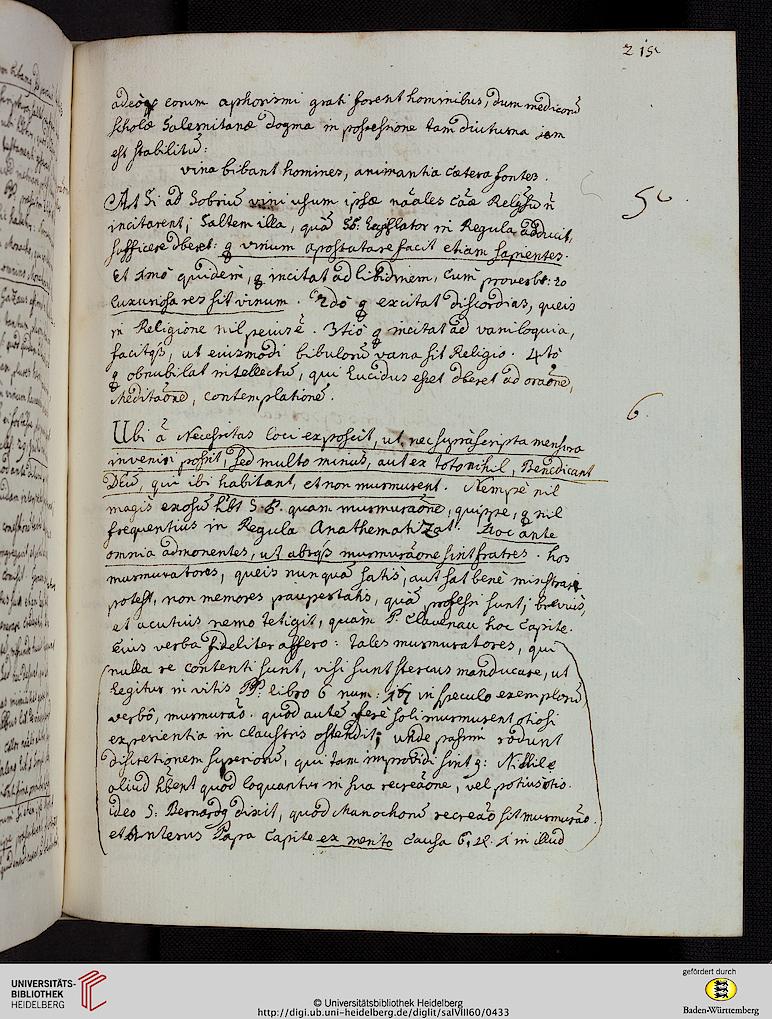 215
adeoq̃ eorum aphorismi grati forent hominibus, dum medicorũ
scholæ Salernitanæ dogma in possessione tam diuturna iam
est stabilitũ:
vina bibant homines, animantia cætera fontes.
5
At si ad sobriũ vini usum ipsæ nãales cãæ Religsũ ñ
incitarent; saltem illa, quã SS. Legislator in Regula adducit,
sufficere dberet: q vinum apostatare facit etiam sapientes.
Et 1mò quidem, q incitat ad libidinem, cum proverb: 20
Luxuriosa res sit vinum. 2dò q excitat discordias, queis
in Religione nil peius ẽ. 3tiò q incitat ad vaniloquia,
facitqß, ut eiusmodi bibulorũ vana sit Religio. 4tò
q obnubilat intellectũ, qui lucidus esset dberet ad orãone,
Meditãone, contemplationẽ.
6.
Ubi ã Necessitas loci exposcit, ut nec suprascripta mensura
inveniri possit, sed multo minus, aut ex toto nihil, Benedicant
Dẽũ, qui ibi habitant, et non murmurent. Nempè nil
magis exosũ hbt S. P. quam murmurãone, quippe, q nil
frequentius in Regula Anathematizat. Hoc ante
omnia admonentes, ut absqß murmurãone sint fratres. hos
murmuratores, queis nunquã satis, aut sat benè ministrari
potest, non memores paupertatis, quã professi sunt, brevius,
et acutius nemo tetigit, quam P. Clavenau hoc capite.
Eius verba fideliter assero: tales murmuratores, qui
nulla re contenti sunt, visi sunt stercus manducare, ut
legitur in vitis PP: libro 6 num: 167 in speculo exemplorũ
verbô, murmurãs. quod autẽ ferè soli murmurent otiosi
experientia in claustris ostendit; unde passim rodunt
discretionem superiorũ, qui tam improvidi sint q: Nihil
aliud hbent quod loquantur in sua recreãone, vel potius otio.
ideo S: Bernardq dixit, quòd Monachorũ recreão sit murmurão.
et Anterus Papa Capite ex merito causa 6, q. 1 in illud
UNIVERSITÄTS-
BIBLIOTHEK
HEIDELBERG
© Universitätsbibliothek Heidelberg
http://digi.ub.uni-heidelberg.de/diglit/salVIII60/0433
gefördert durch
Baden-Württemberg